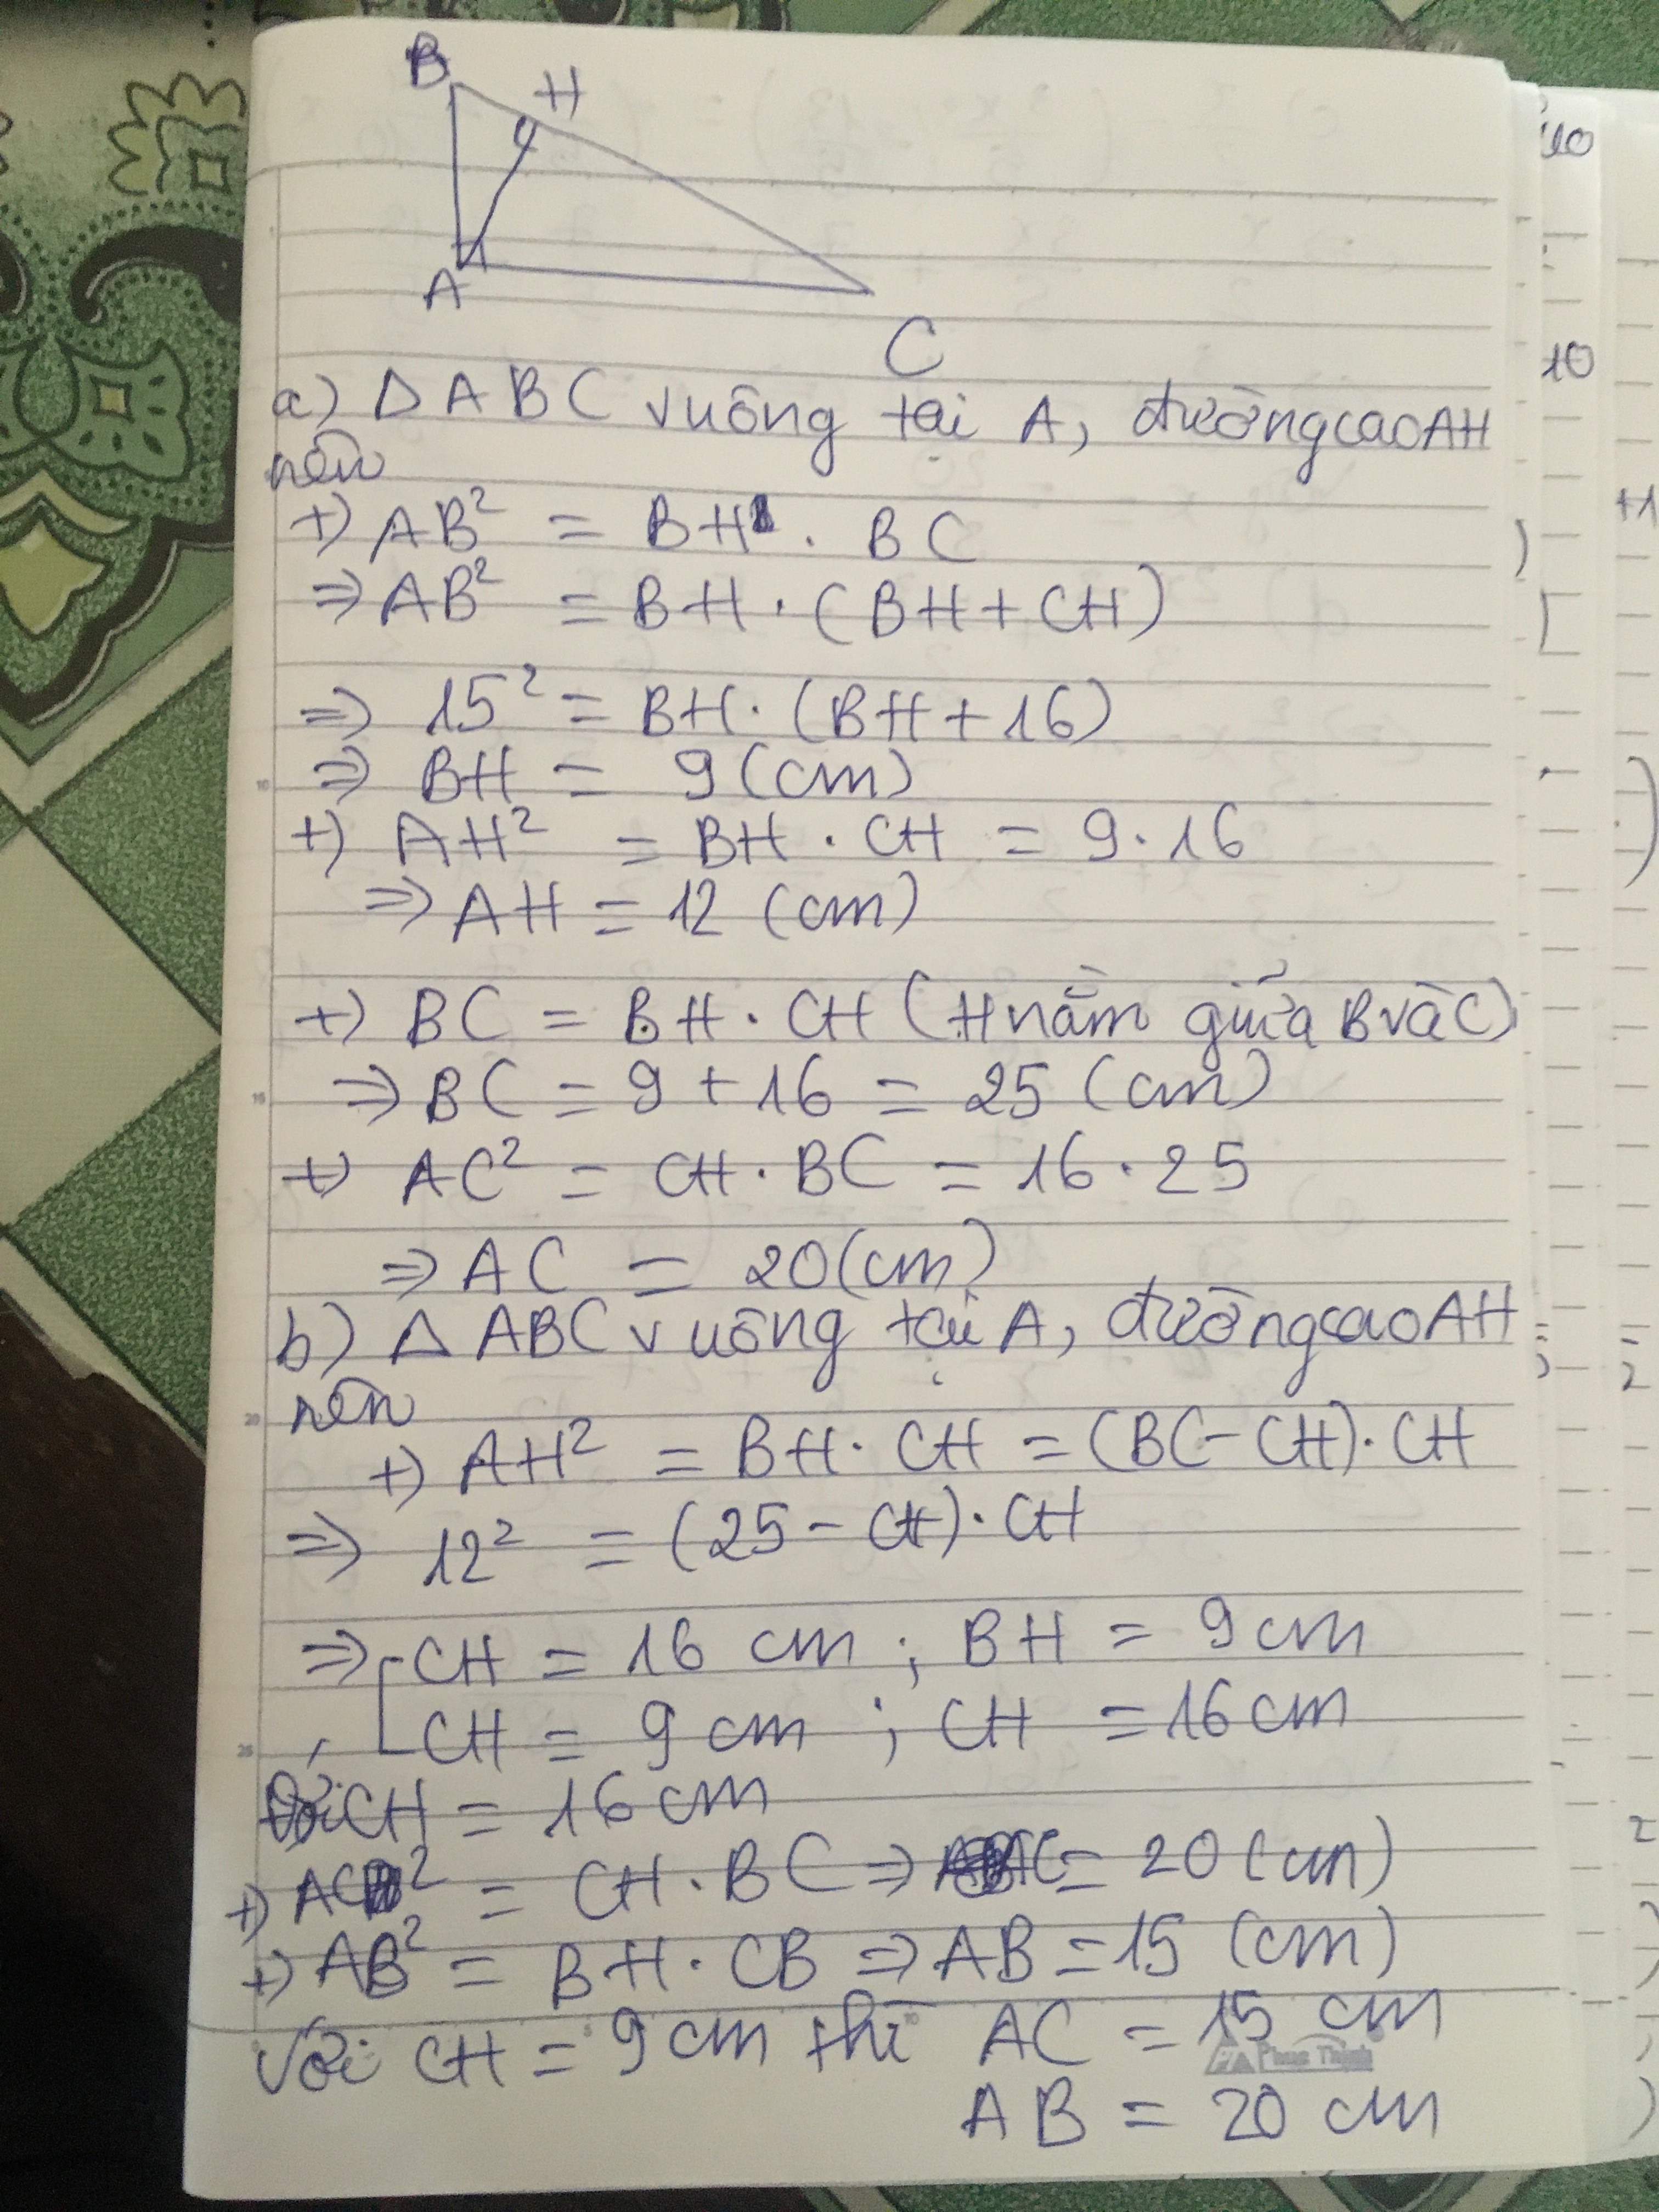 B
H
A
C
a) Δ ABC vuông tại A, đường cao AH
nên
+) AB² = BH . BC
⇒ AB² = BH . (BH + CH)
⇒ 15² = BH . (BH + 16)
⇒ BH = 9 (cm)
+) AH² = BH . CH = 9 . 16
⇒ AH = 12 (cm)
+) BC = BH . CH (H nằm giữa B và C)
⇒ BC = 9 + 16 = 25 (cm)
+) AC² = CH . BC = 16 . 25
⇒ AC = 20 (cm)
b) Δ ABC vuông tại A, đường cao AH
nên
+) AH² = BH . CH = (BC - CH) . CH
⇒ 12² = (25 - CH) . CH
⇒ [ CH = 16 cm ; BH = 9 cm
CH = 9 cm ; CH = 16 cm
Với CH = 16 cm
+) AC² = CH . BC ⇒ AC = 20 (cm)
+) AB² = BH . CB ⇒ AB = 15 (cm)
Với CH = 9 cm thì AC = 15 cm
AB = 20 cm
10
15
20
25
5
10
10
+1
2
2